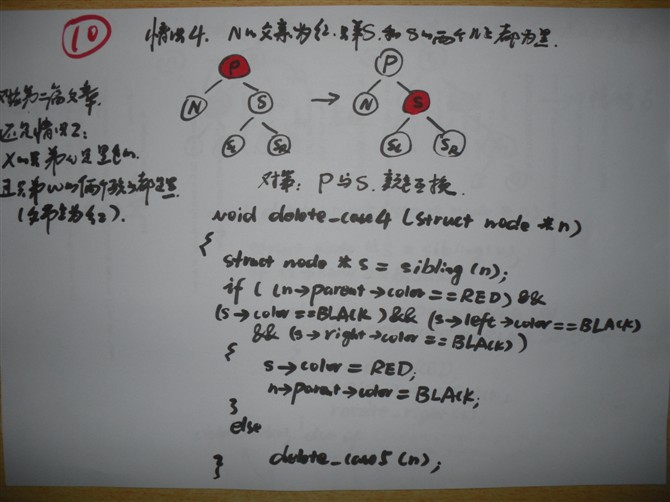 10
情况4. N的父亲为红.兄弟S.和S的两个儿子都为黑.
P
N
S
SL
SR
→
P
N
S
SL
SR
对应第二篇文章.
还是情况2:
X的兄弟w是黑色的.
且兄弟w的俩个孩子都是黑
对策: P与S. 颜色互换.
void delete_case4 (struct node *n)
{
struct node * s = sibling (n);
if ( (n->parent->color == RED) &&
(s->color == BLACK) && (s->left->color == BLACK)
&& (s->right->color == BLACK) )
{
s->color = RED;
n->parent->color = BLACK;
}
else
delete_case5 (n);
}